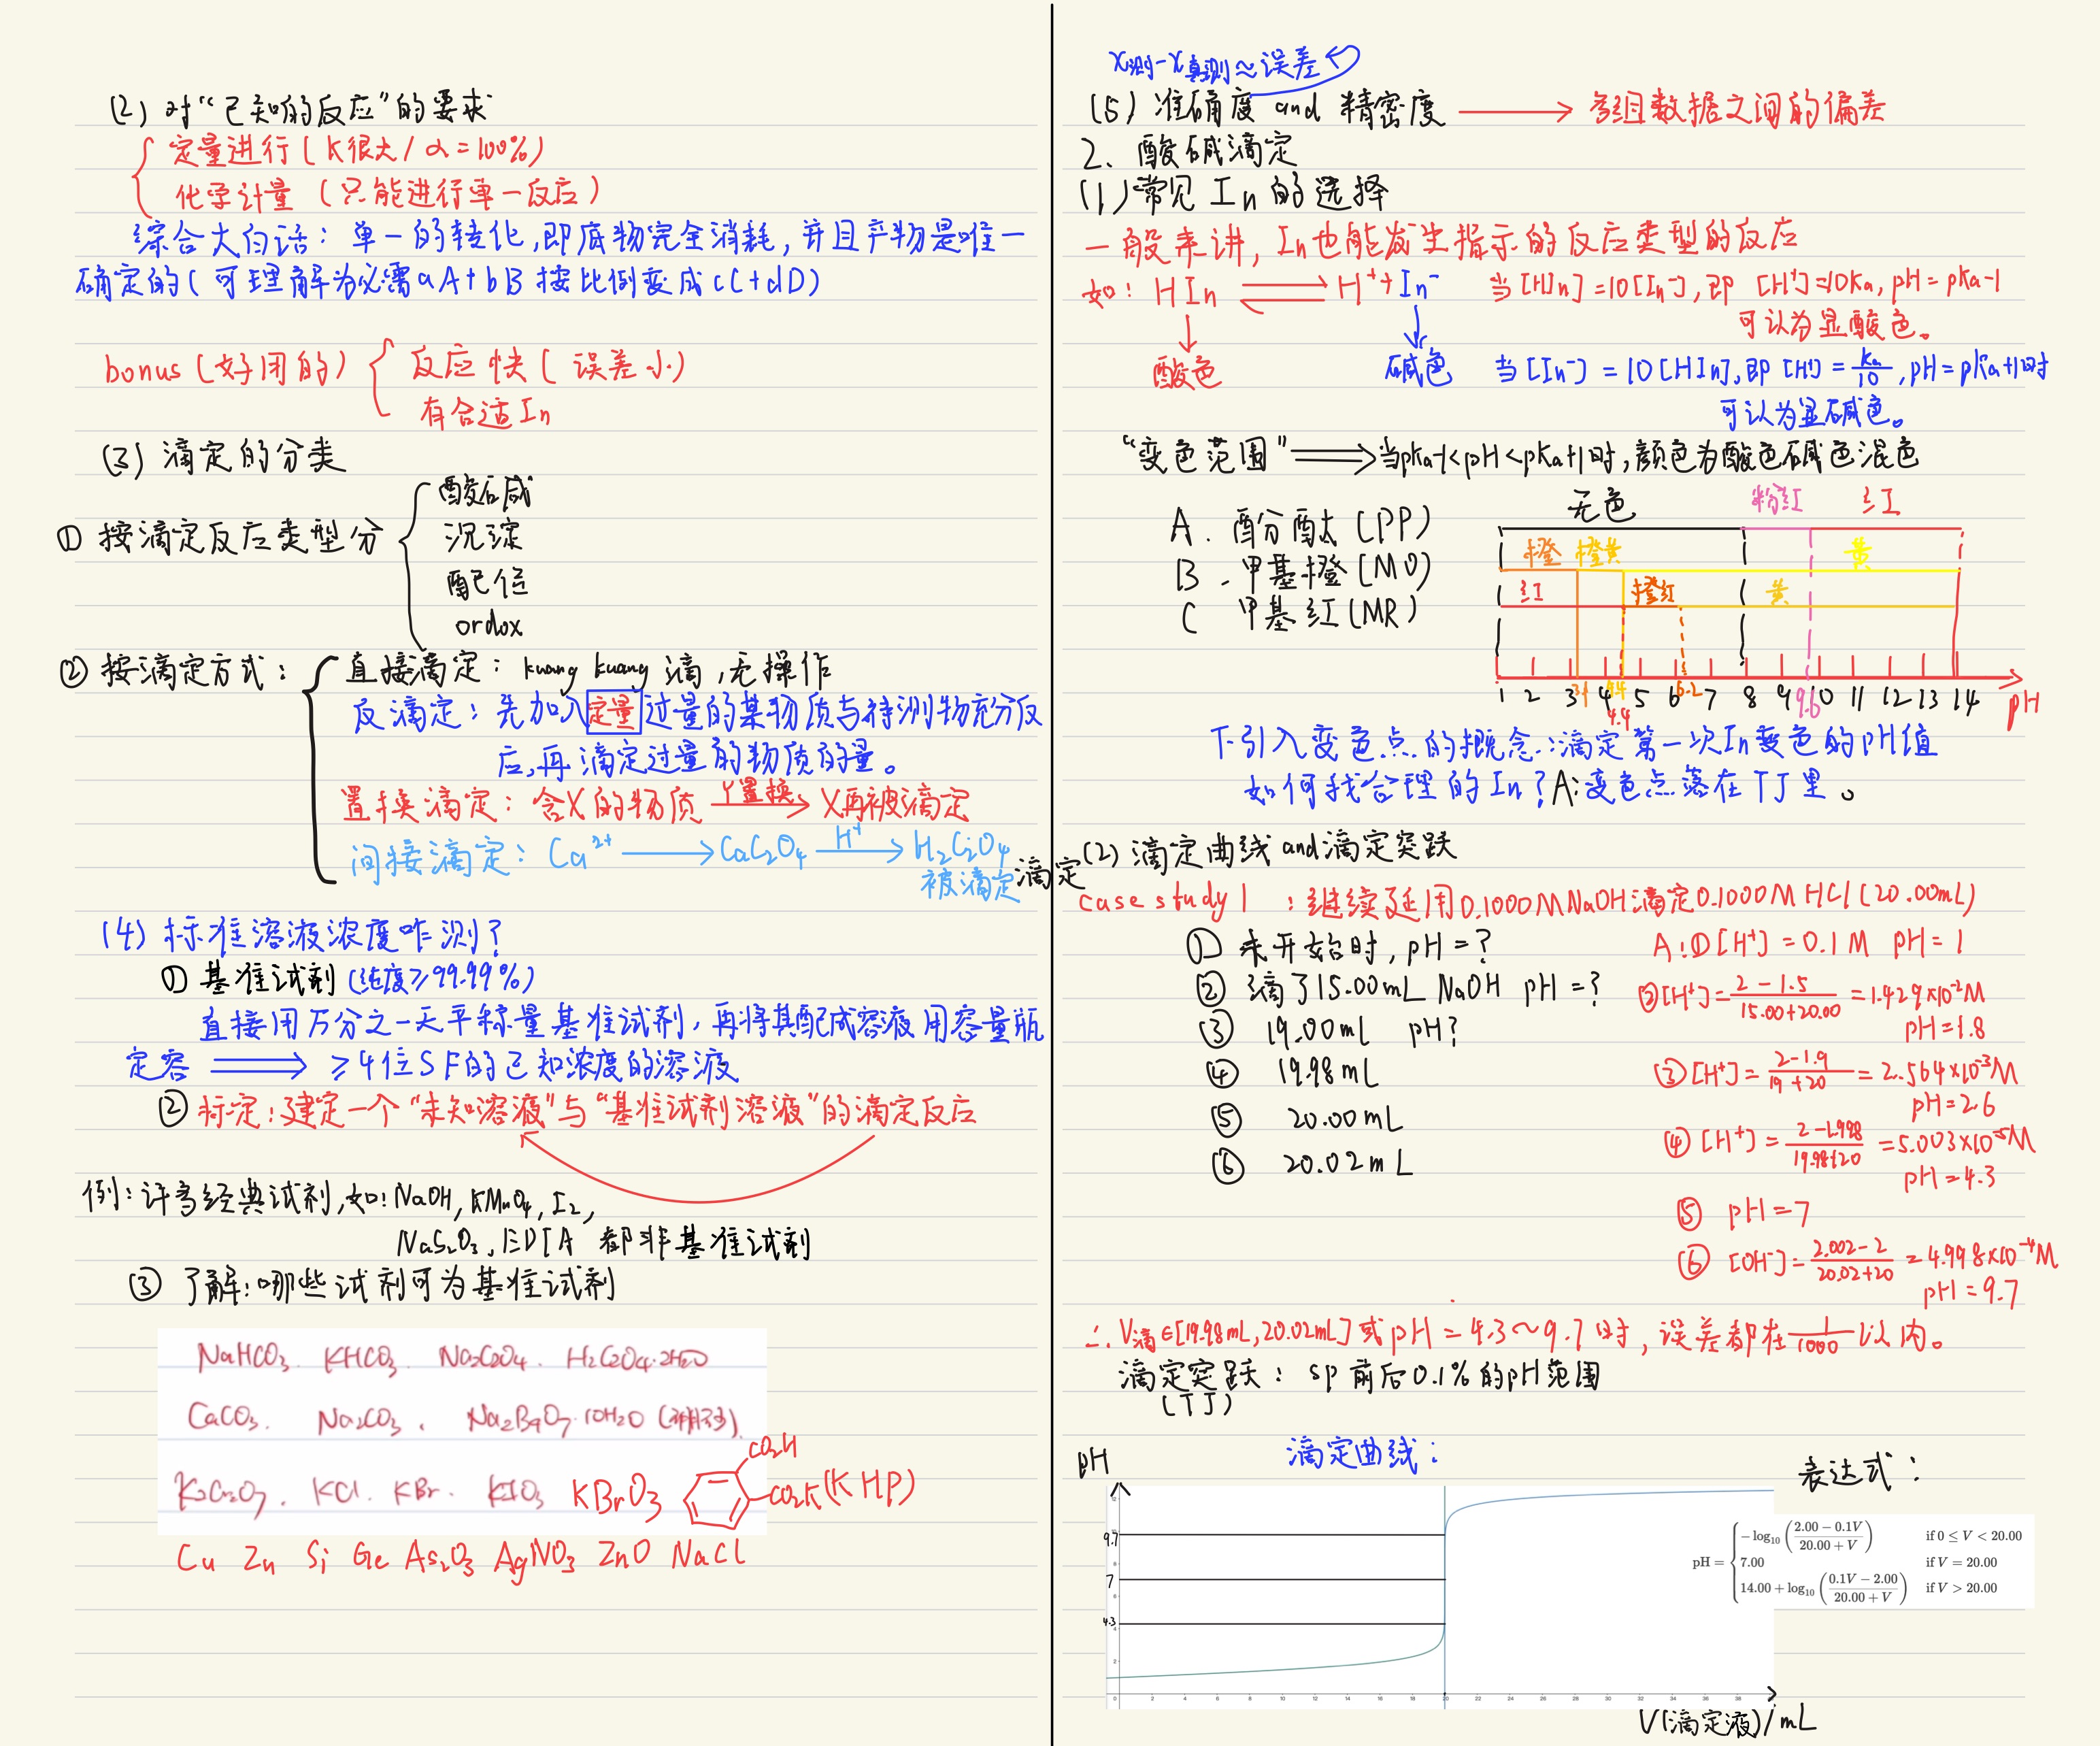 (2) 对“已知的反应”的要求
定量进行(K很大/α=100%)
化学计量(只能进行单一反应)
综合大白话:单一的转化,即底物完全消耗,并且产物是唯一
确定的(可理解为必需aA+bB按比例变成cC+dD)
bonus(好闭的)
反应快(误差小)
有合适In
(3) 滴定的分类
① 按滴定反应类型分
酸碱
沉淀
配位
ordox
② 按滴定方式:
直接滴定: kuang kuang 滴,无操作
反滴定:先加入定量过量的某物质与待测物充分反
应,再滴定过量的物质的量。
置换滴定:含X的物质 Y置换→ X再被滴定
间接滴定: Ca²⁺ → CaC₂O₄ H⁺→ H₂C₂O₄
被滴定
滴定
(4) 标准溶液浓度咋测?
① 基准试剂(纯度≥99.99%)
直接用万分之一天平称量基准试剂,再将其配成溶液用容量瓶
定容 ⟹ ≥4位SF的已知浓度的溶液
② 标定:建定一个“未知溶液”与“基准试剂溶液”的滴定反应
例:许多经典试剂,如:NaOH, KMnO₄, I₂,
NaS₂O₃, EDTA 都非基准试剂
③ 了解:哪些试剂可为基准试剂
NaHCO₃. KHCO₃. Na₂C₂O₄. H₂C₂O₄·2H₂O
CaCO₃. Na₂CO₃. Na₂B₄O₇·10H₂O
K₂Cr₂O₇. KCl. KBr. KIO₃ KBrO₃ CO₂H CO₂K(KHP)
Cu Zn Si Ge As₂O₃ AgNO₃ ZnO NaCl
x测-x真测≈误差
(5) 准确度 and 精密度 → 多组数据之间的偏差
2. 酸碱滴定
(1) 常见In的选择
一般来讲,In也能发生指示的反应类型的反应
如: HIn ⇌ H⁺+In⁻ 当[HIn]=10[In⁻],即 [H⁺]=10Ka, pH=pKa-1
可认为显酸色。
酸色 碱色 当[In⁻]=10[HIn],即[H⁺]=Ka/10, pH=pKa+1时
可认为显碱色。
“变色范围” ⟹ 当pKa-1<pH<pKa+1时,颜色为酸色碱色混色
A. 酚酞(PP)
B. 甲基橙(MO)
C 甲基红(MR)
无色 粉红 红
橙 橙黄 黄
红 橙红 黄
1 2 3 3.1 4 4.4 5 6 6.2 7 8 9 9.6 10 11 12 13 14 pH
4.4
下引入变色点的概念:滴定第一次In变色的pH值
如何找合理的In? A:变色点落在TJ里。
(2) 滴定曲线and滴定突跃
case study 1 :继续延用0.1000M NaOH滴定0.1000M HCl(20.00mL)
① 未开始时, pH=?
② 滴了15.00mL NaOH pH=?
③ 19.00mL pH?
④ 19.98mL
⑤ 20.00mL
⑥ 20.02mL
A:①[H⁺]=0.1M pH=1
②[H⁺]=2-1.5/15.00+20.00=1.429×10⁻²M
pH=1.8
③[H⁺]=2-1.9/19+20=2.564×10⁻³M
pH=2.6
④[H⁺]=2-1.998/19.98+20=5.003×10⁻⁵M
pH=4.3
⑤ pH=7
⑥ [OH⁻]=2.002-2/20.02+20=4.998×10⁻⁴M
pH=9.7
∴V滴∈[19.98mL,20.02mL]或pH=4.3~9.7时,误差都在1/1000以内。
滴定突跃: sp前后0.1%的pH范围
(TJ)
滴定曲线:
pH
9.7
7
4.3
12
8
6
4
2
0 2 4 6 8 10 12 14 16 18 20 22 24 26 28 30 32 34 36 38
V(滴定液)/mL
表达式:
pH = { -log₁₀(2.00 - 0.1V / 20.00 + V) if 0 ≤ V < 20.00
7.00 if V = 20.00
14.00 + log₁₀(0.1V - 2.00 / 20.00 + V) if V > 20.00